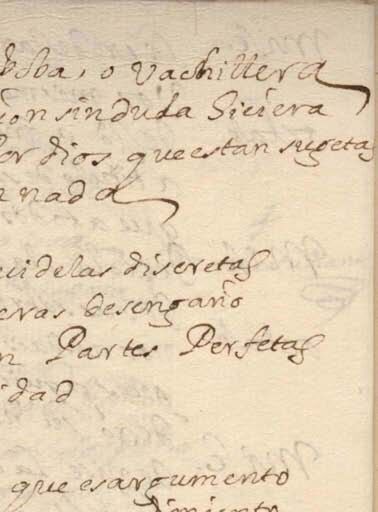 boba, o vachillera
con sinduda Siciera
Por dios queestan sugetas
nada
cidelas discretas
eras desengaño
n Partes Perfetas
idad
que esargumento